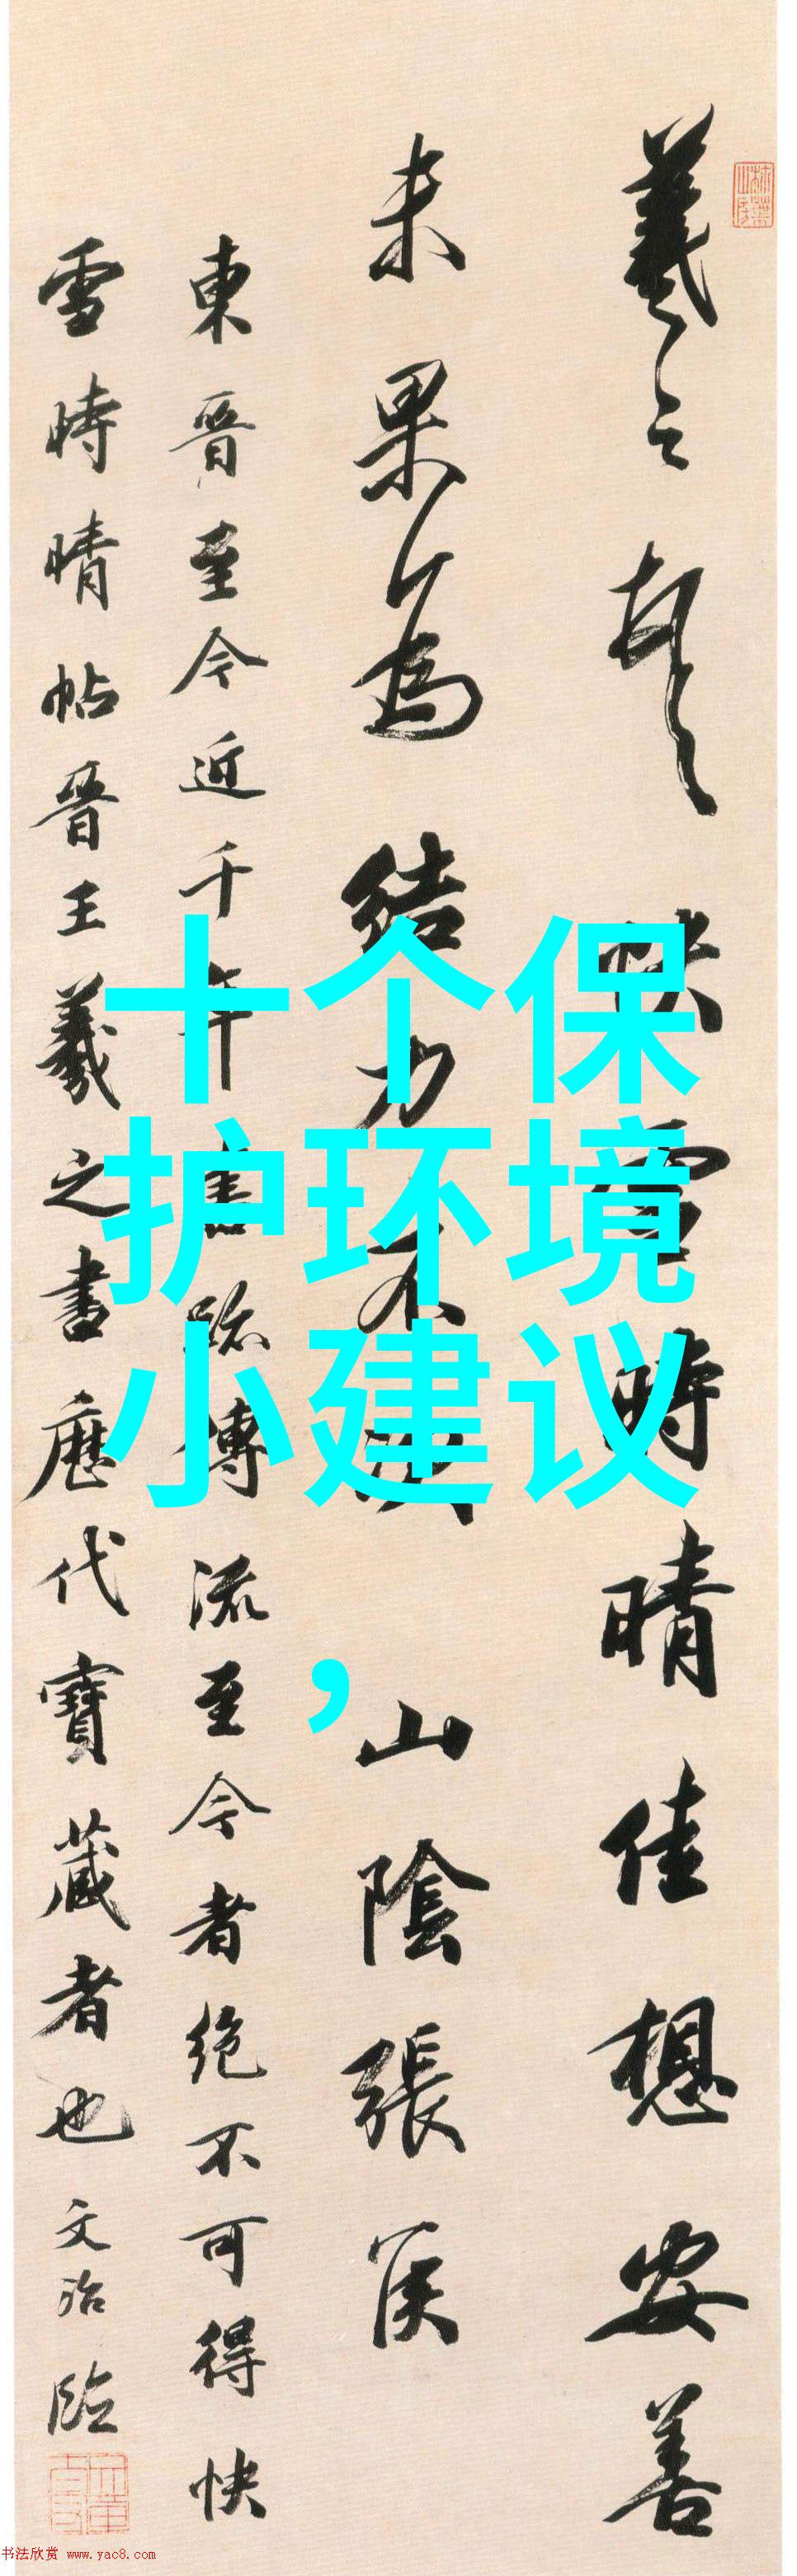 羲之頓首快雪時晴佳想安善
未果為結力不次山陰張侯
東晉至今近千年書跡傳流至今者絶不可得快
雪時晴帖晉王羲之書歷代寶藏者也文治臨
十个保
护环境
小建议
，
书法欣赏 www.yac8.com